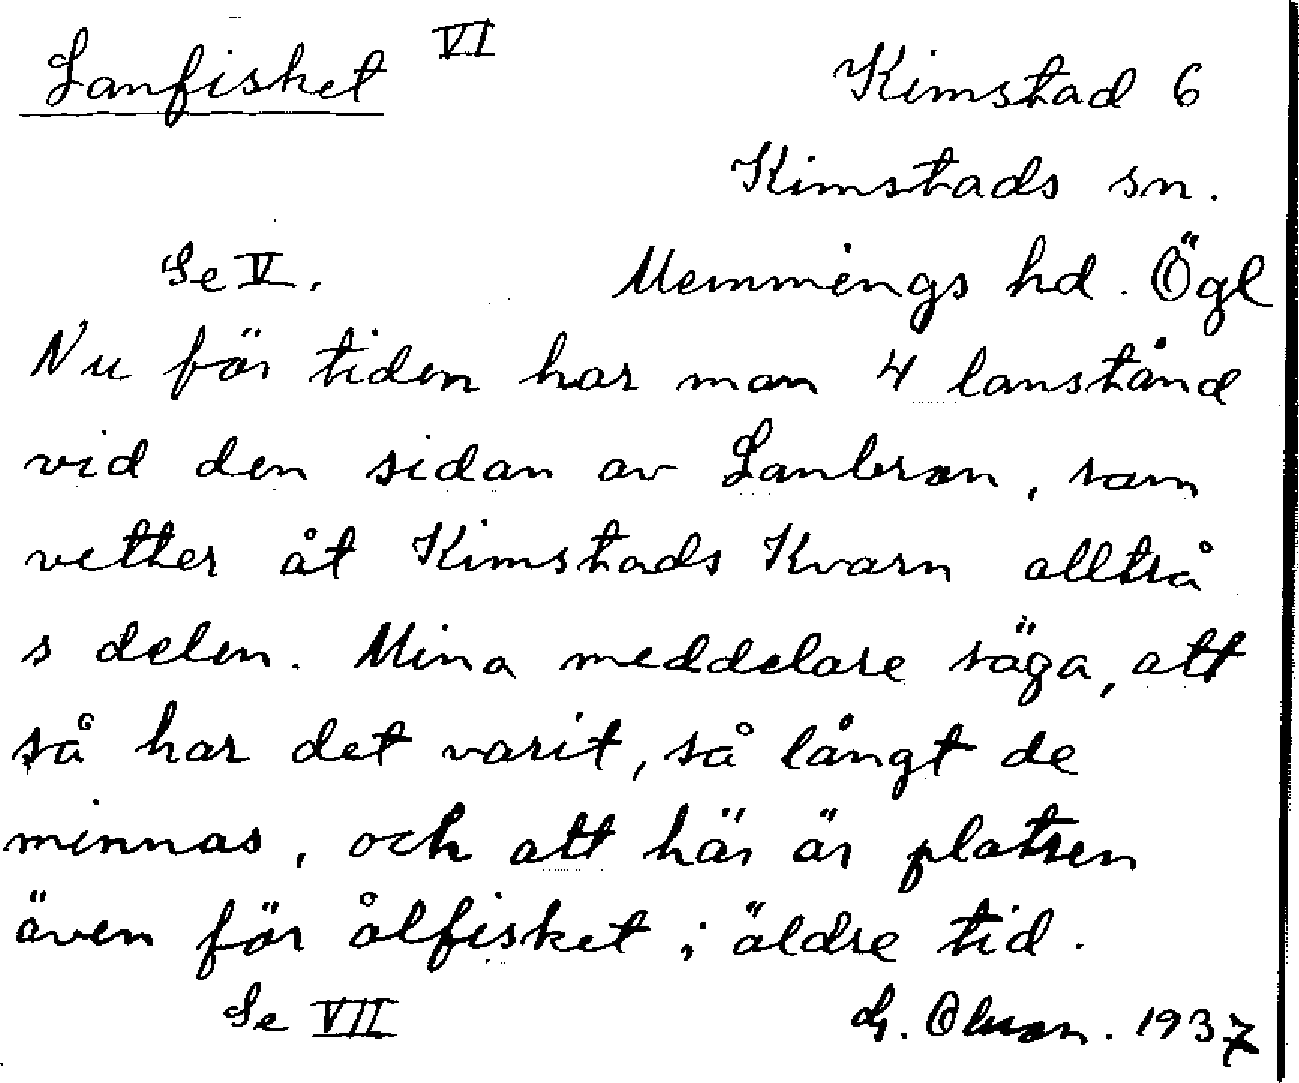 Lanfisket VI
Kimstad 6
Kimstads sn.
Se V. Memmings hd. Ögl
Nu för tiden har man 4 lanstånd
vid den sidan av Lanbron, som
vetter åt Kimstads Kvarn alltså
s delen. Mina meddelare säga, att
så har det varit, så långt de
minnas, och att här är platsen
även för ålfisket i äldre tid.
Se VII G. Olsson. 1937